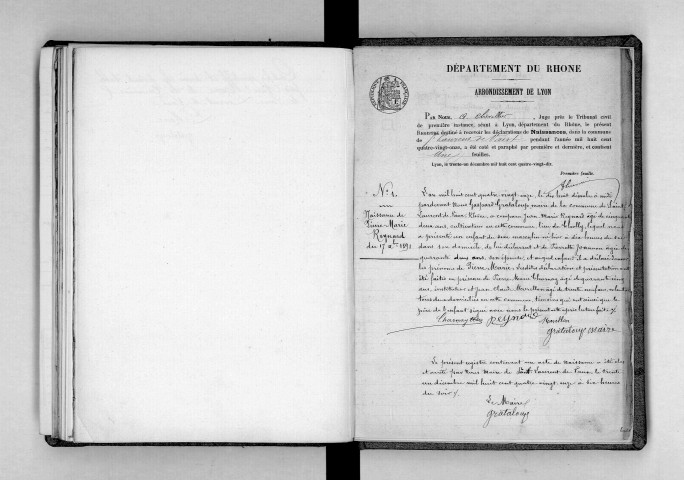 DÉPARTEMENT DU RHONE
ARRONDISSEMENT DE LYON
PAR NOUS, Juge près le Tribunal civil
de première instance, séant à Lyon, département du Rhône, le présent
REGISTRE destiné à recevoir les déclarations de Naissances, dans la commune
de St Laurent de Vaux pendant l'année mil huit cent
quatre-vingt-onze, a été coté et paraphé par première et dernière, et contient
feuilles.
Lyon, le trente-un décembre mil huit cent quatre-vingt-dix.
Première feuille.
N° 1.
Naissance de
Pierre Marie
Reynard
du 17
1891
L'an mil huit cent quatre vingt onze, le dix huit
pardevant Nous Gaspard Grataloup maire de la commune de Saint
Laurent de Vaux Rhône, a comparu Jean Marie Reynard âgé de cinquante
deux ans, cultivateur en cette commune, lieu de lequel nous
a présenté un enfant du sexe masculin né hier à dix heures du
dans son domicile, de lui déclarant et de Pierrette Joannon âgée de
quarante deux ans, son épouse; et auquel enfant il a déclaré donner
les prénoms de Pierre Marie. Lesdites déclaration et présentation ont
été faites en présence de Pierre Marie Charnay âgé de quarante cinq
ans, instituteur et Jean Claude âgé de trente neuf ans,
tous deux domiciliés en cette commune, témoins qui ont ainsi que le
père de l'enfant signé avec nous le présent acte après lecture faite
Charnay Reynard
grataloup maire
Le présent registre contenant un acte de naissance a été clos
et arrêté par Nous Maire de Saint Laurent de Vaux le trente
un décembre mil huit cent quatre vingt onze à six heures
du soir
Le Maire
grataloup